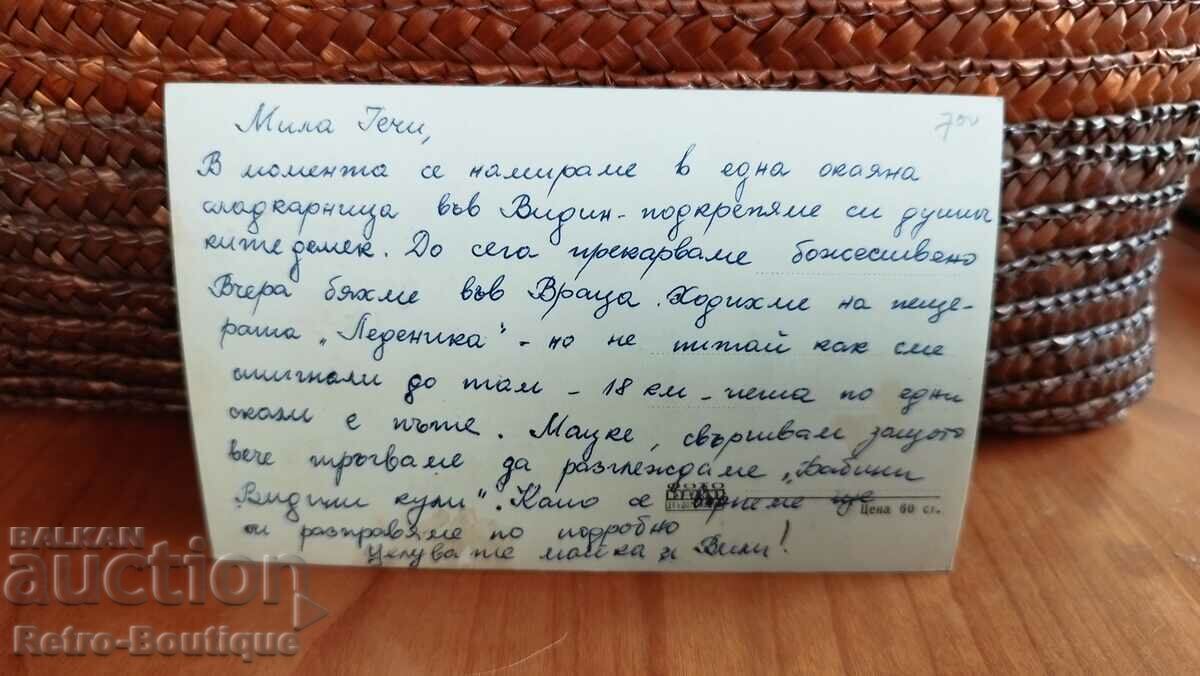 Мила Гечи,
700
В момента се намираме в една окаяна
сладкарница във Видин - подкрепяме си душич
ките демек. До сега прекарваме божествено
Вчера бяхме във Враца. Ходихме на пеще-
рата „Леденика" - но не питай как сме
стигнали до там - 18 км - пеша по едни
скали е пътя. Мацке, свършвам защото
вече тръгваме да разглеждаме „Бабини
Видини кули". Като се върнеме ще
ти разправяме по подробно
Целувайте мама и Вили!
Цена 60 ст.
BALKAN
auction
Retro-Boutique